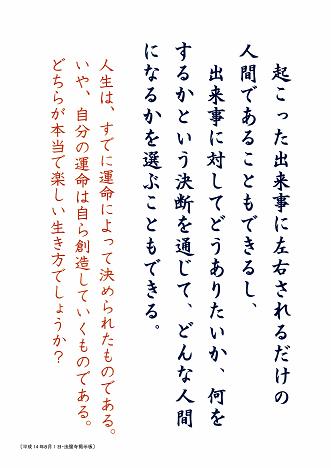 起こった出来事に左右されるだけの
人間であることもできるし、
出来事に対してどうありたいか、何を
するかという決断を通じて、どんな人間
になるかを選ぶこともできる。
人生は、すでに運命によって決められたものである。
いや、自分の運命は自ら創造していくものである。
どちらが本当で楽しい生き方でしょうか？
(平成14年8月1日・法閑寺掲示板)